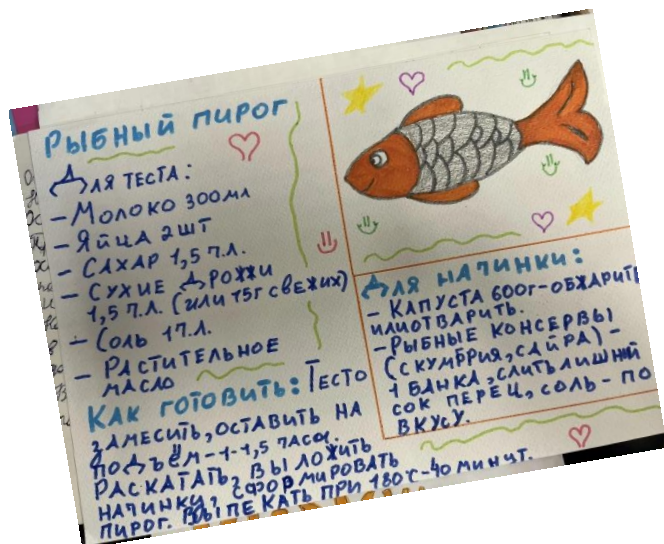 Рыбный пирог
Для теста:
- Молоко 300мл
- Яйца 2шт
- Сахар 1,5 ч.л.
- Сухие дрожжи
1,5 ч.л. (или 15г свежих)
- Соль 1ч.л.
- Растительное
масло
Как готовить: Тесто
замесить, оставить на
подъём - 1-1,5 часа.
Раскатать, выложить
начинку, сформировать
пирог. Выпекать при 180°с-40 минут.
Для начинки:
- Капуста 600г - обжарить
или отварить.
- Рыбные консервы
(скумбрия, сайра) -
1 банка, слить лишний
сок перец, соль - по
вкусу.